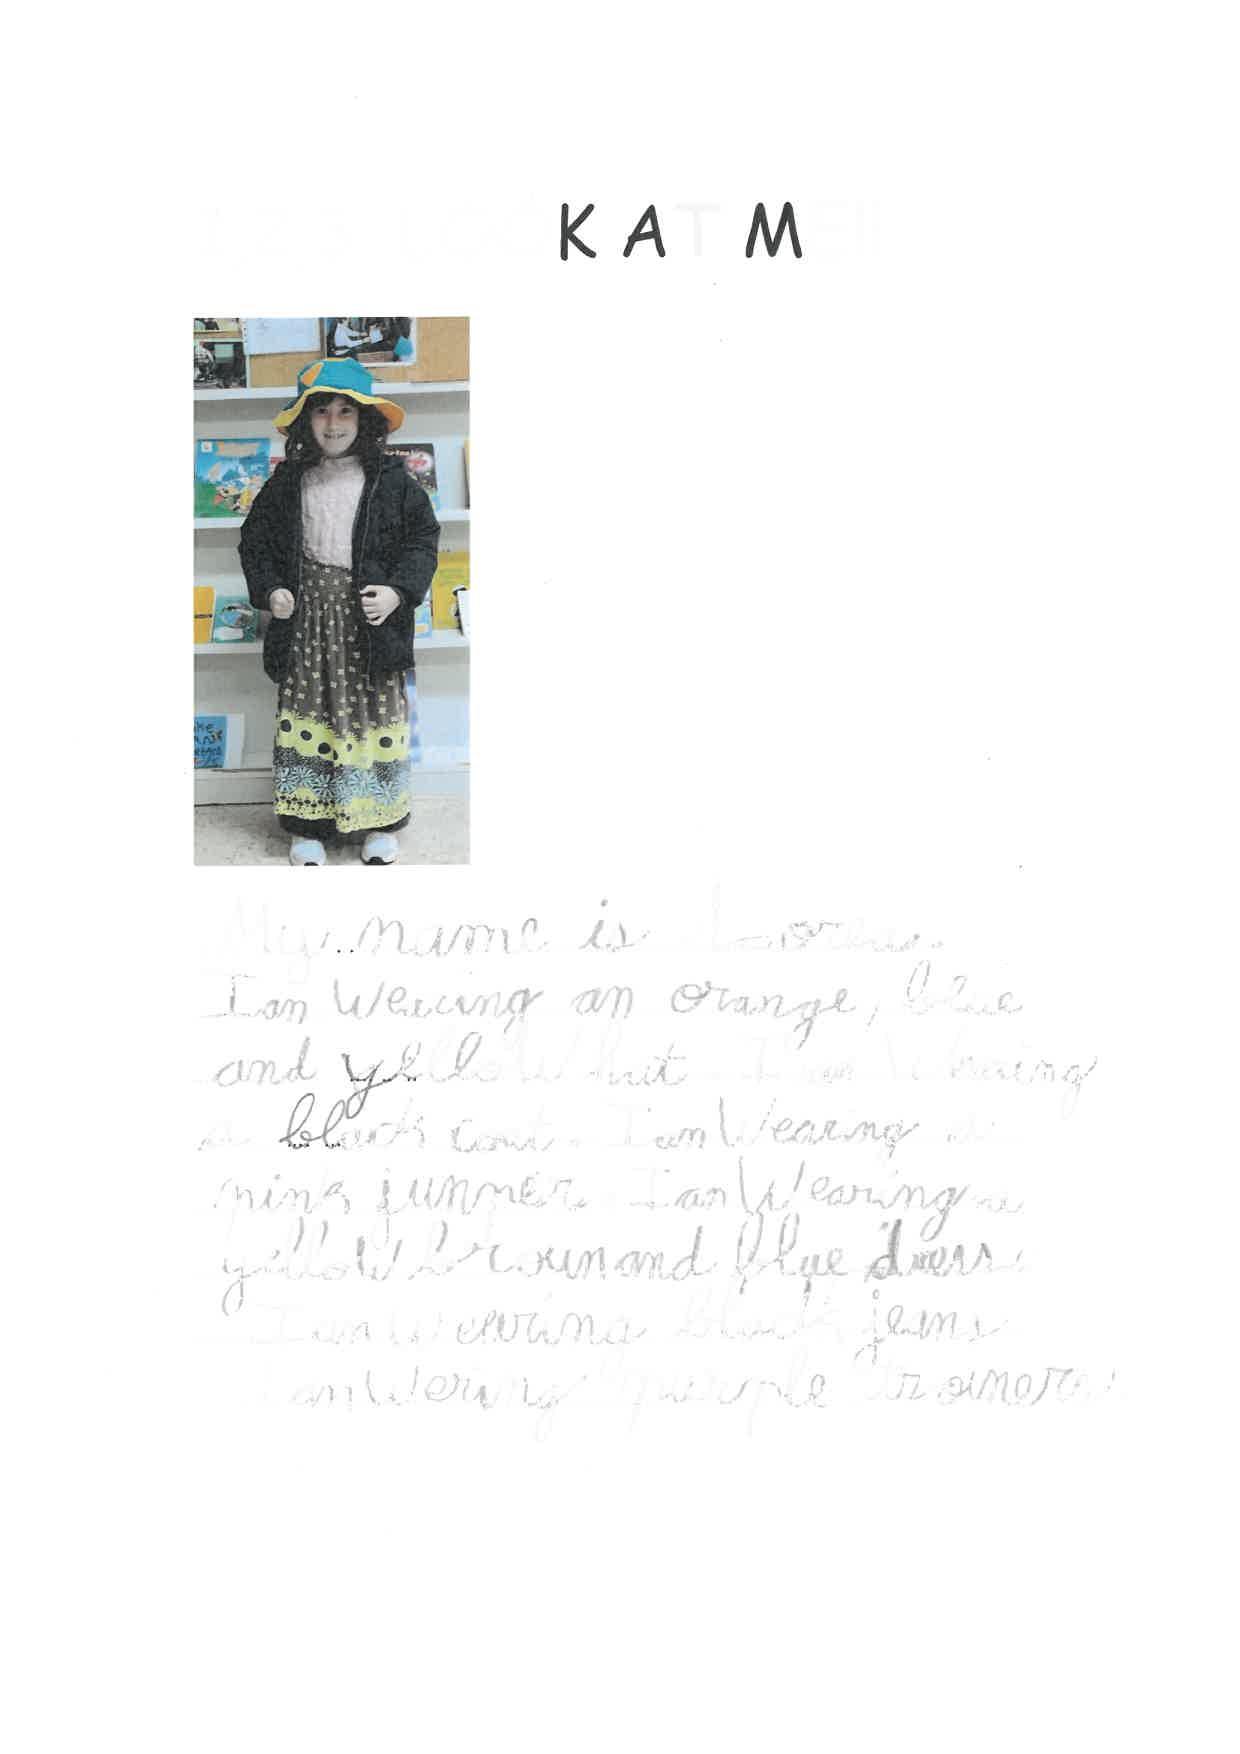 1, 2, 3 LOOK AT ME!!
My name is Lorea.
I an Wearing an orange, blue
and yelloW hat. I an Wearing
a black coat. I an Wearing a
pink jumper. I an Wearing a
yelloW broun and blue dress.
I an Wearing black jeans
I an Wering purple trainers.